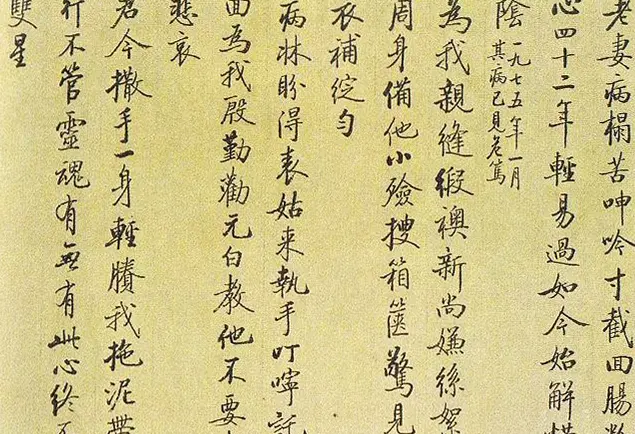 老妻病榻苦呻吟寸截回腸
心四十二年輕易過如今始解惜
陰 一九七五年一月其病已見危篤
為我親縫緞襖新尚嫌絲絮
周身備他小殮搜箱篋驚見
衣補綻勻
病牀盼得表姑来執手叮嚀託
面為我殷勤勸元白教他不要
悲哀
君今撒手一身輕賸我拖泥帶
行不管靈魂有無有此心終不
雙星